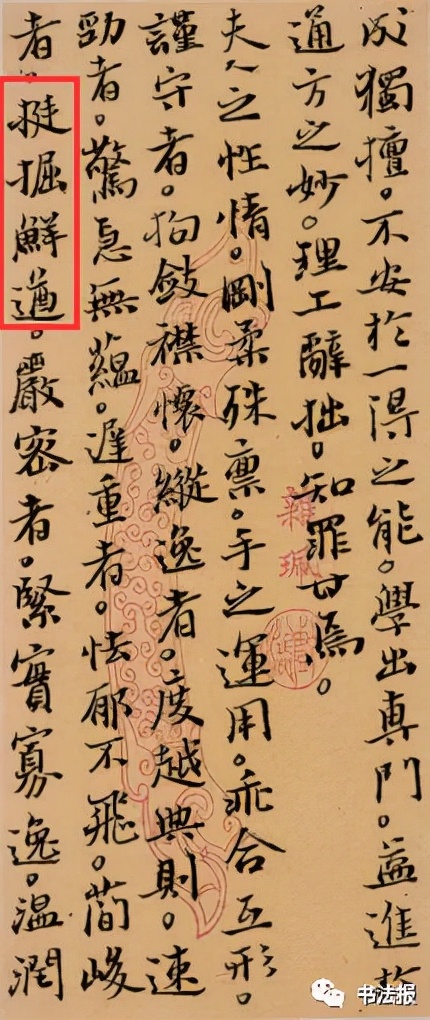 成獨擅。不安於一得之能。學出專門。益進於
通方之妙。理工辭拙。知罪甘焉。
夫人之性情。剛柔殊禀。手之運用。乖合互形。
謹守者。拘斂襟懷。縱逸者。度越典則。速
勁者。驚急無蘊。遲重者。怯郁不飛。簡峻
者。挺掘鮮遒。嚴密者。緊實寡逸。溫潤
雜珮
书法报